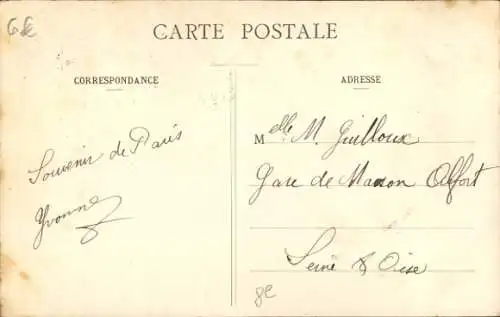 6€
CARTE POSTALE
CORRESPONDANCE
Souvenir de Paris
Yvonne
ADRESSE
Melle M. Guilloux
Gare de Maison Alfort
Seine & Oise
8E